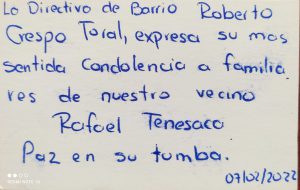 La Directivo de Barrio Roberto
Crespo Toral, expresa su mas
sentida Condolencia a familia
res de nuestro vecino
Rafael Tenesaca
Paz en su tumba.
07/02/2022